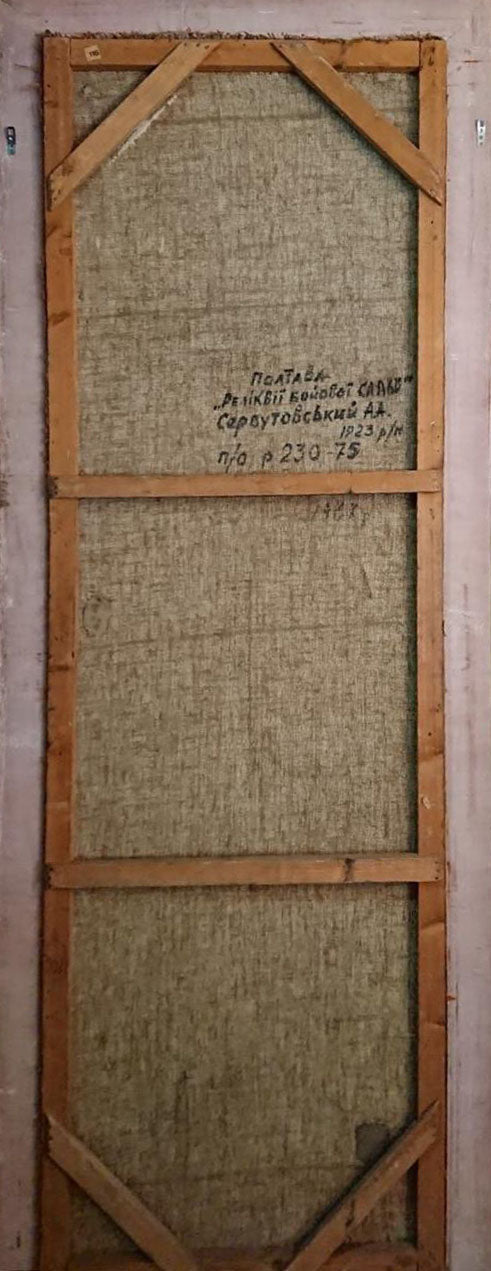 Полтава
„Реліквії бойової слави"
Сербутовський А.А.
1923 р/н
п/о р 230-75